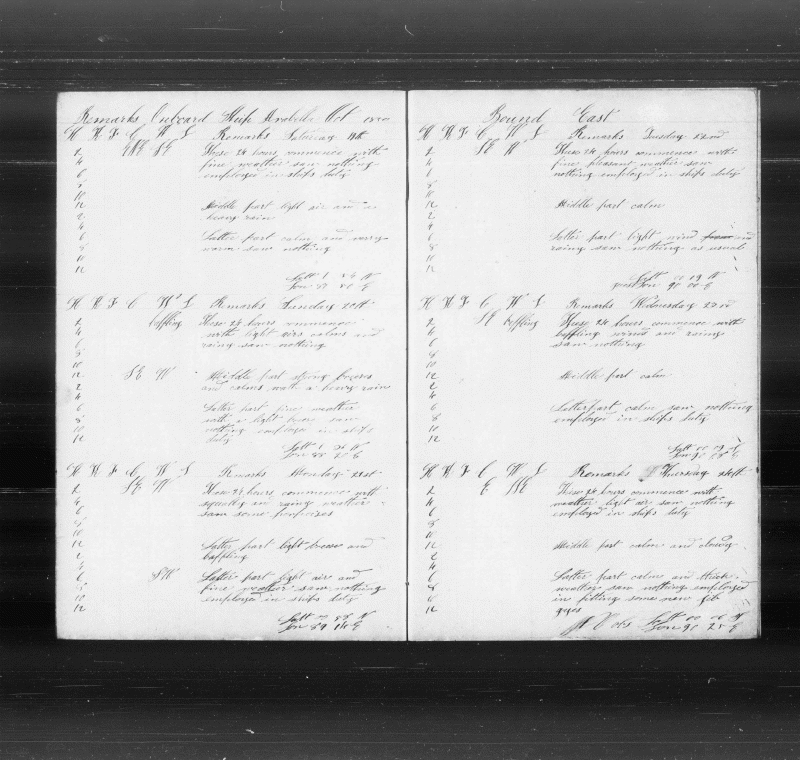 Remarks Onboard Ship Arabella Oct
H H F C W L Remarks Saturday 19th
2 ENE SE These 24 hours commence with
4 fine weather saw nothing
6 employed in ships duty
8
10
12 Middle part light air and a
2 heavy rain
4
6 Latter part calm and very
8 warm saw nothing
10
12
Latt 1
Lon
H H F C W L Remarks Sunday 20th
2 baffling These 24 hours commence
4 with light airs calms and
6 rainy saw nothing
8
10
12 SE W Middle part strong breezes
2 and calms with a heavy rain
4
6 Latter part fine weather
8 with a light breeze saw
10 nothing employed in ships
12 duty
Latt 1
Lon
H H F C W L Remarks Monday 21st
2 SE W These 24 hours commence with
4 squally an rainy weather
6 saw some porpoises
8
10
12 Latter part light breeze and
2 baffling
4
6 SW Latter part light air and
8 fine weather saw nothing
10 employed in ships duty
12
Latt
Lon 89
Bound East
H H F C W L Remarks Tuesday 22nd
2 SE W These 24 hours commence with
4 fine pleasant weather saw
6 nothing employed in ships duty
8
10
12 Middle part calm
2
4
6 Latter part light wind and
8 rainy saw nothing as usual
10
12
Latt 00 19 N
Lon 90 00 E
H H F C W L Remarks Wednesday 23rd
2 SE baffling These 24 hours commence with
4 baffling winds and rainy
6 saw nothing
8
10
12 Middle part calm
2
4
6 Latter part calm saw nothing
8 employed in ships duty
10
12
Latt 00
Lon 90
H H F C W L Remarks Thursday 24th
2 E SSE These 24 hours commence with
4 weather light air saw nothing
6 employed in ships duty
8
10
12 Middle part calm and cloudy
2
4
6 Latter part calm and thick
8 weather saw nothing employed
10 in fitting some new jib
12 guys
Latt 00 06 N
Lon 90 25 E